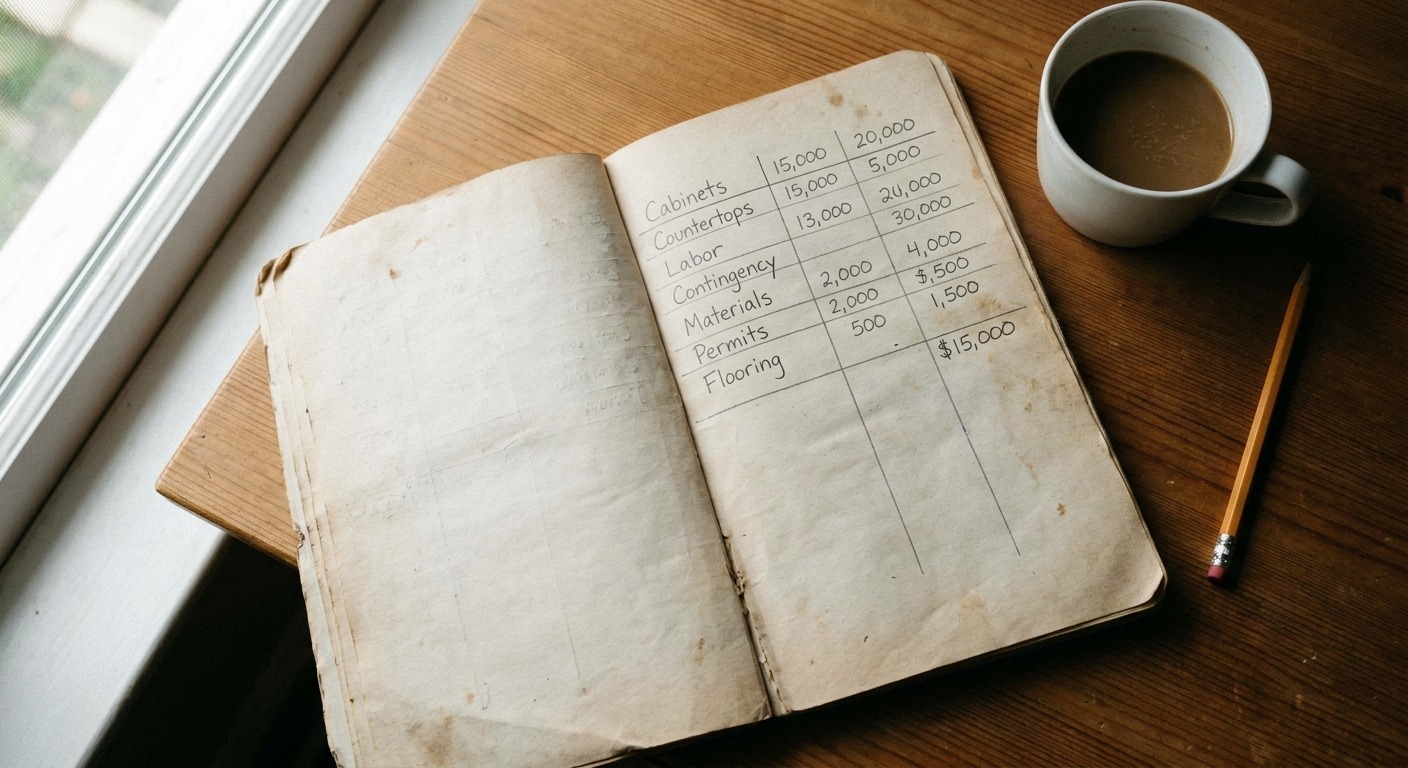 Cabinets 15,000 20,000
Countertops 15,000 5,000
Labor 13,000 20,000
Contingency 30,000
Materials 2,000 4,000
Permits 2,000 $,500
Flooring 500 1,500
$15,000